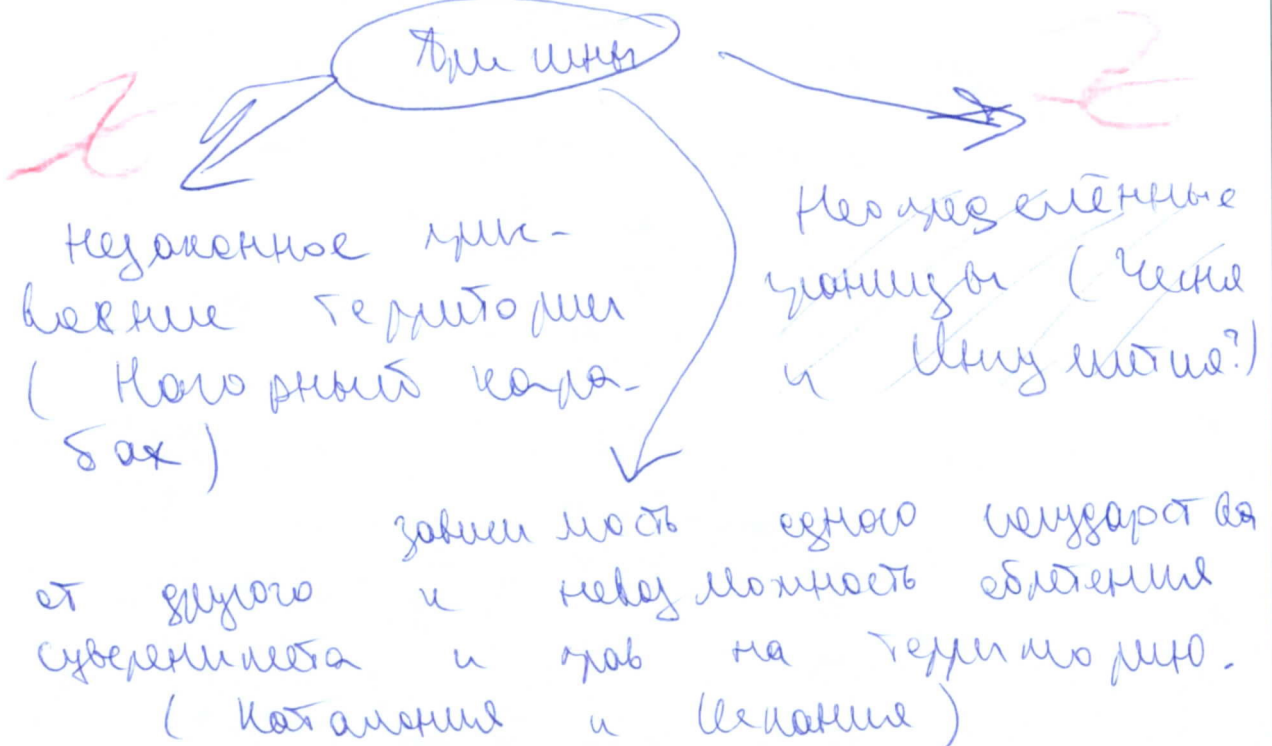 Причины
Незаконное прис-
воение территории
( Нагорный кара-
бах )
Неопределённые
границы ( Чечня
и Ингушетия?)
зависимость одного государства
от другого и невозможность обретения
суверенитета и прав на территорию.
( Каталония и Испания )